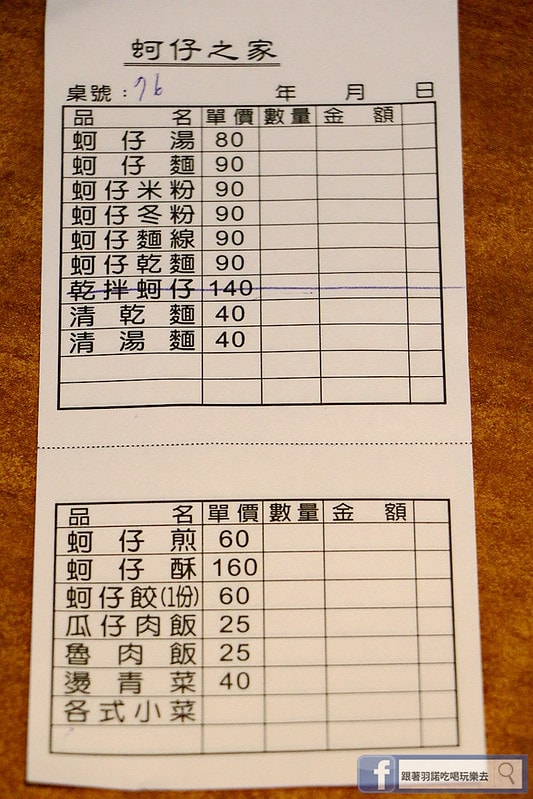 蚵仔之家
桌號：76 年 月 日
品名 單價 數量 金額
蚵仔湯 80
蚵仔麵 90
蚵仔米粉 90
蚵仔冬粉 90
蚵仔麵線 90
蚵仔乾麵 90
乾拌蚵仔 140
清乾麵 40
清湯麵 40
品名 單價 數量 金額
蚵仔煎 60
蚵仔酥 160
蚵仔餃(1份) 60
瓜仔肉飯 25
魯肉飯 25
燙青菜 40
各式小菜
f 跟著羽諾吃喝玩樂去